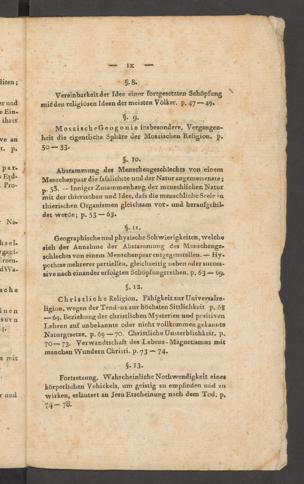 — IX —
§. 8.
Vereinbarkeit der Idee einer fortgesetzten Schöpfung
mit den religiösen Ideen der meisten Völker. p. 47—49.
§. 9.
Mosaische Geogonie insbesondere, Vergangen-
heit die eigentliche Sphäre der Mosaischen Religion. p.
50—53.
§. 10.
Abstammung des Menschengeschlechts von einem
Menschenpaar die faslichste und der Natur angemessenste;
p. 53. — Inniger Zusammenhang der menschlichen Natur
mit der thierischen und Idee, daß die menschliche Seele in
thierischen Organismen gleichsam vor- und heraufgebil-
det werde; p. 53—63.
§. 11.
Geographische und physische Schwierigkeiten, welche
sich der Annahme der Abstammung des Menschenge-
schlechts von einem Menschenpaar entgegenstellen. — Hy-
pothese mehrerer partiellen, gleichzeitig neben oder succes-
sive nach einander erfolgten Schöpfungsreihen. p. 63—69.
§. 12.
Christliche Religion. Fähigkeit zur Universalre-
ligion, wegen der Tendenz zur höchsten Sittlichkeit p. 68
—69. Beziehung der christlichen Mysterien und positiven
Lehren auf unbekannte oder nicht vollkommen gekannte
Naturgesetze. p. 69—70. Christliche Unsterblichkeit. p.
70—73. Verwandtschaft des Lebens-Magnetismus mit
manchen Wundern Christi. p. 73—74.
§. 13.
Fortsetzung. Wahrscheinliche Nothwendigkeit eines
körperlichen Vehickels, um geistig zu empfinden und zu
wirken, erläutert an Jesu Erscheinung nach dem Tod. p.
74—78.